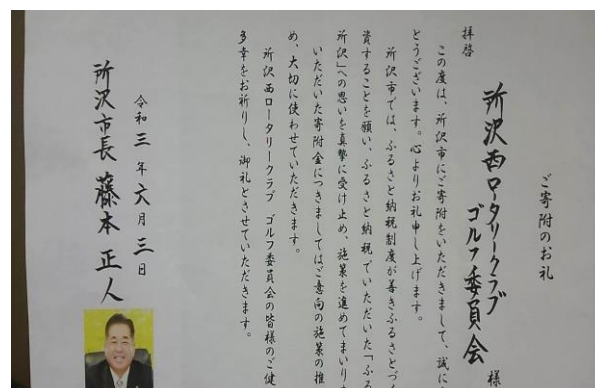 ご寄附のお礼
所沢西ロータリークラブ
ゴルフ委員会 様
拝啓
この度は、所沢市にご寄附をいただきまして、誠に
とうございます。心よりお礼申し上げます。
所沢市では、ふるさと納税制度が善きふるさとづ
資することを願い、ふるさと納税でいただいた「ふる
所沢」への思いを真摯に受け止め、施策を進めてまいり
いただいた寄附金につきましてはご意向の施策の推
め、大切に使わせていただきます。
所沢西ロータリークラブ ゴルフ委員会の皆様のご健
多幸をお祈りし、御礼とさせていただきます。
令和三年六月三日
所沢市長 藤本正人